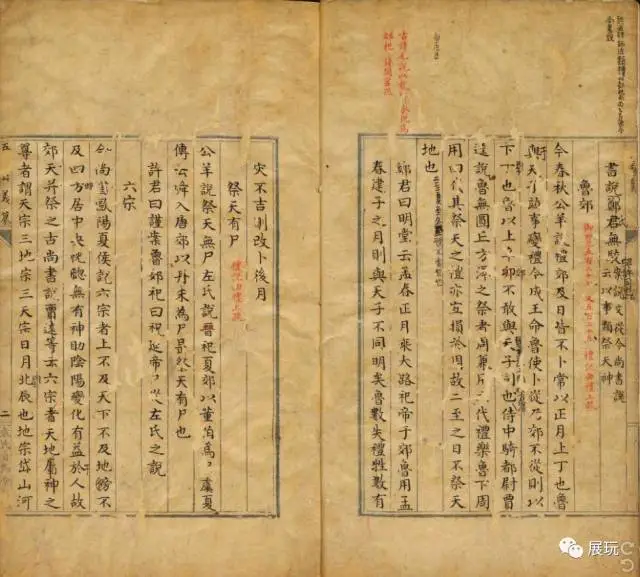 書說鄭君無駁 案說文從今尚書說
云以事類祭天神
魯郊
今春秋公羊說禮郊及日皆不卜常以正月上丁也魯
與天子並事變禮今成王命魯使卜從乃郊不從則以
下丁也魯以上辛郊不敢與天子同也侍中騎都尉賈
逵說魯無圜丘方澤之祭者周兼用六代禮樂魯下周
用四代其祭天之禮亦宜損於周故二至之日不祭天
地也
鄭君曰明堂云孟春正月乘大路祀帝于郊魯用孟
春建子之月則與天子不同明矣魯數失禮牲數有
災不吉則改卜後月
祭天有尸 禮記曲禮上疏
公羊說祭天無尸左氏說晉祀夏郊以董伯為尸虞夏
傳云舜入唐郊以丹朱為尸是祭天有尸也
許君曰謹案魯郊祀曰祝延帝尸從左氏之說
六宗
今尚書歐陽夏侯說六宗者上不及天下不及地傍不
及四方居中央恍惚無有神助陰陽變化有益於人故
郊天并祭之古尚書說賈逵等云六宗者天地屬神之
尊者謂天宗三地宗三天宗日月北辰也地宗岱山河
二
展玩